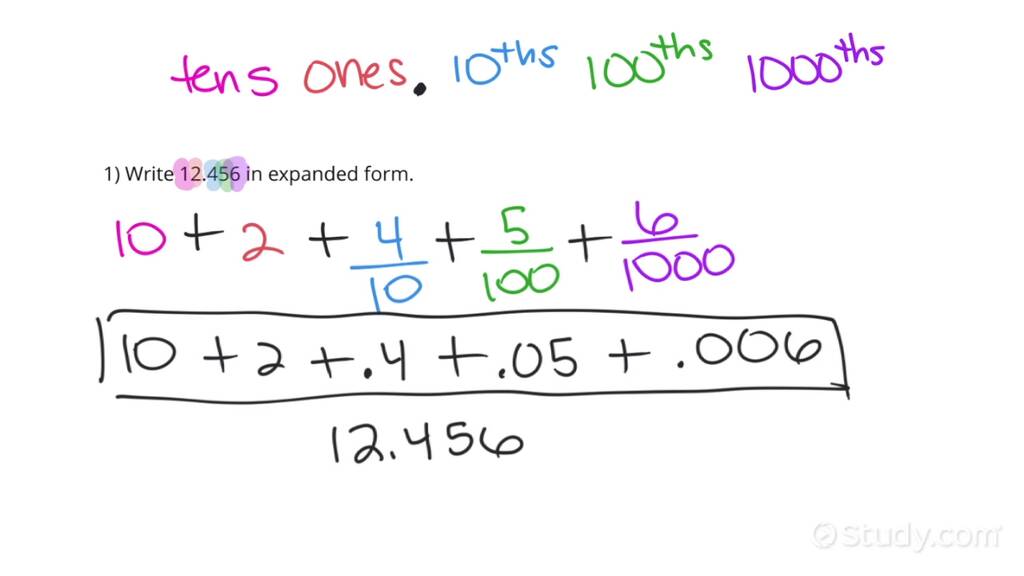 tens ones. 10ths 100ths 1000ths
1) Write 12.456 in expanded form.
10 + 2 + 4/10 + 5/100 + 6/1000
10 + 2 + .4 + .05 + .006
12.456
Study.com